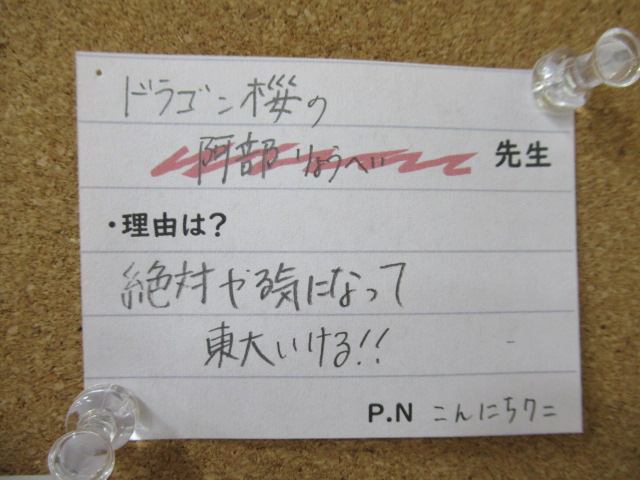 ドラゴン桜の
阿部りょうへい 先生
・理由は？
絶対やる気になって
東大いける!!
P.N こんにちワニ